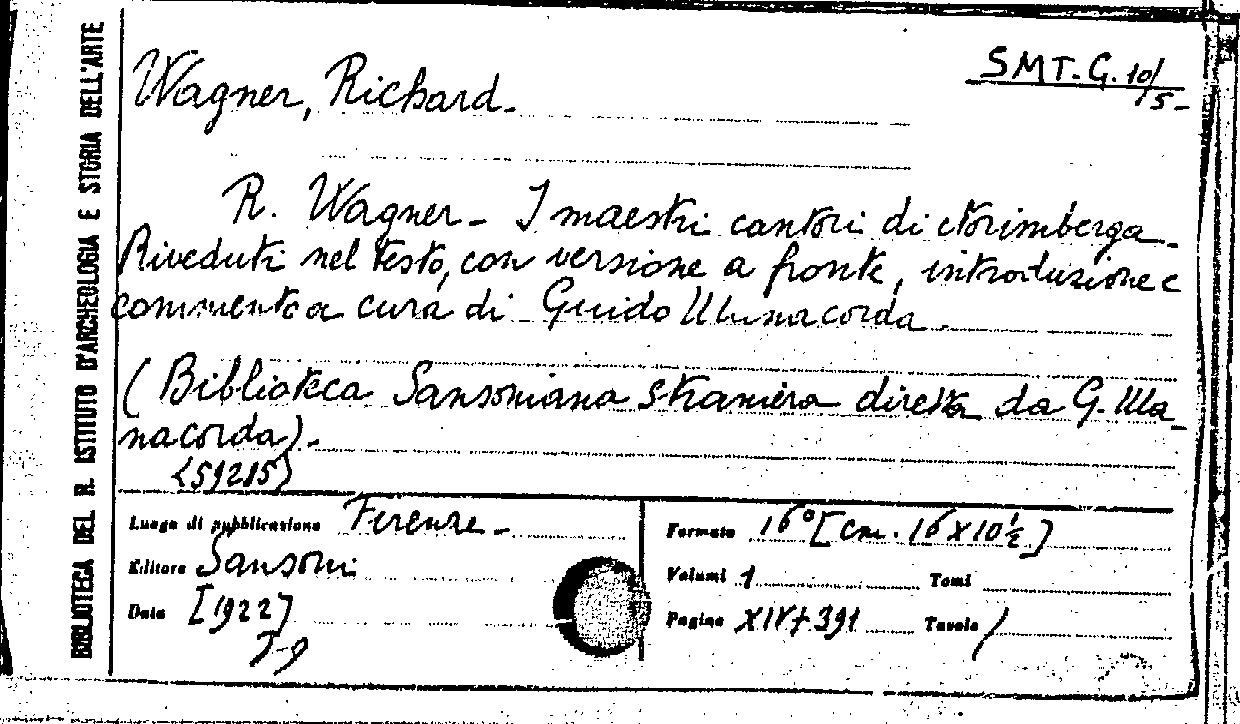 BIBLIOTECA DEL R. ISTITUTO D'ARCHEOLOGIA E STORIA DELL'ARTE
SMT.G. 10/5-
Wagner, Richard.
R. Wagner - I maestri cantori di Norimberga.
Riveduti nel testo, con versione a fronte, introduzione e
commento a cura di Guido Manacorda.
(Biblioteca Sansoniana straniera diretta da G. Ma_
nacorda).-
(59285)
Luogo di pubblicazione Firenze-
Editore Sansoni
Data [1922]
Formato 16° [cm. 16 x 10½]
Volumi 1 Tomi
Pagine XIV+391 Tavole /